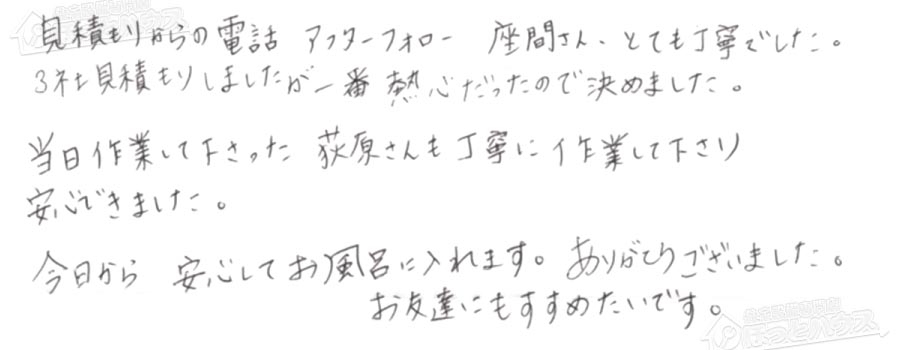 見積もりからの電話 アフターフォロー 座間さん、とても丁寧でした。
3社見積もりしましたが一番熱心だったので決めました。
当日作業して下さった 荻原さんも丁寧に作業して下さり
安心できました。
今日から 安心してお風呂に入れます。ありがとうございました。
お友達にもすすめたいです。
ほっとハウス